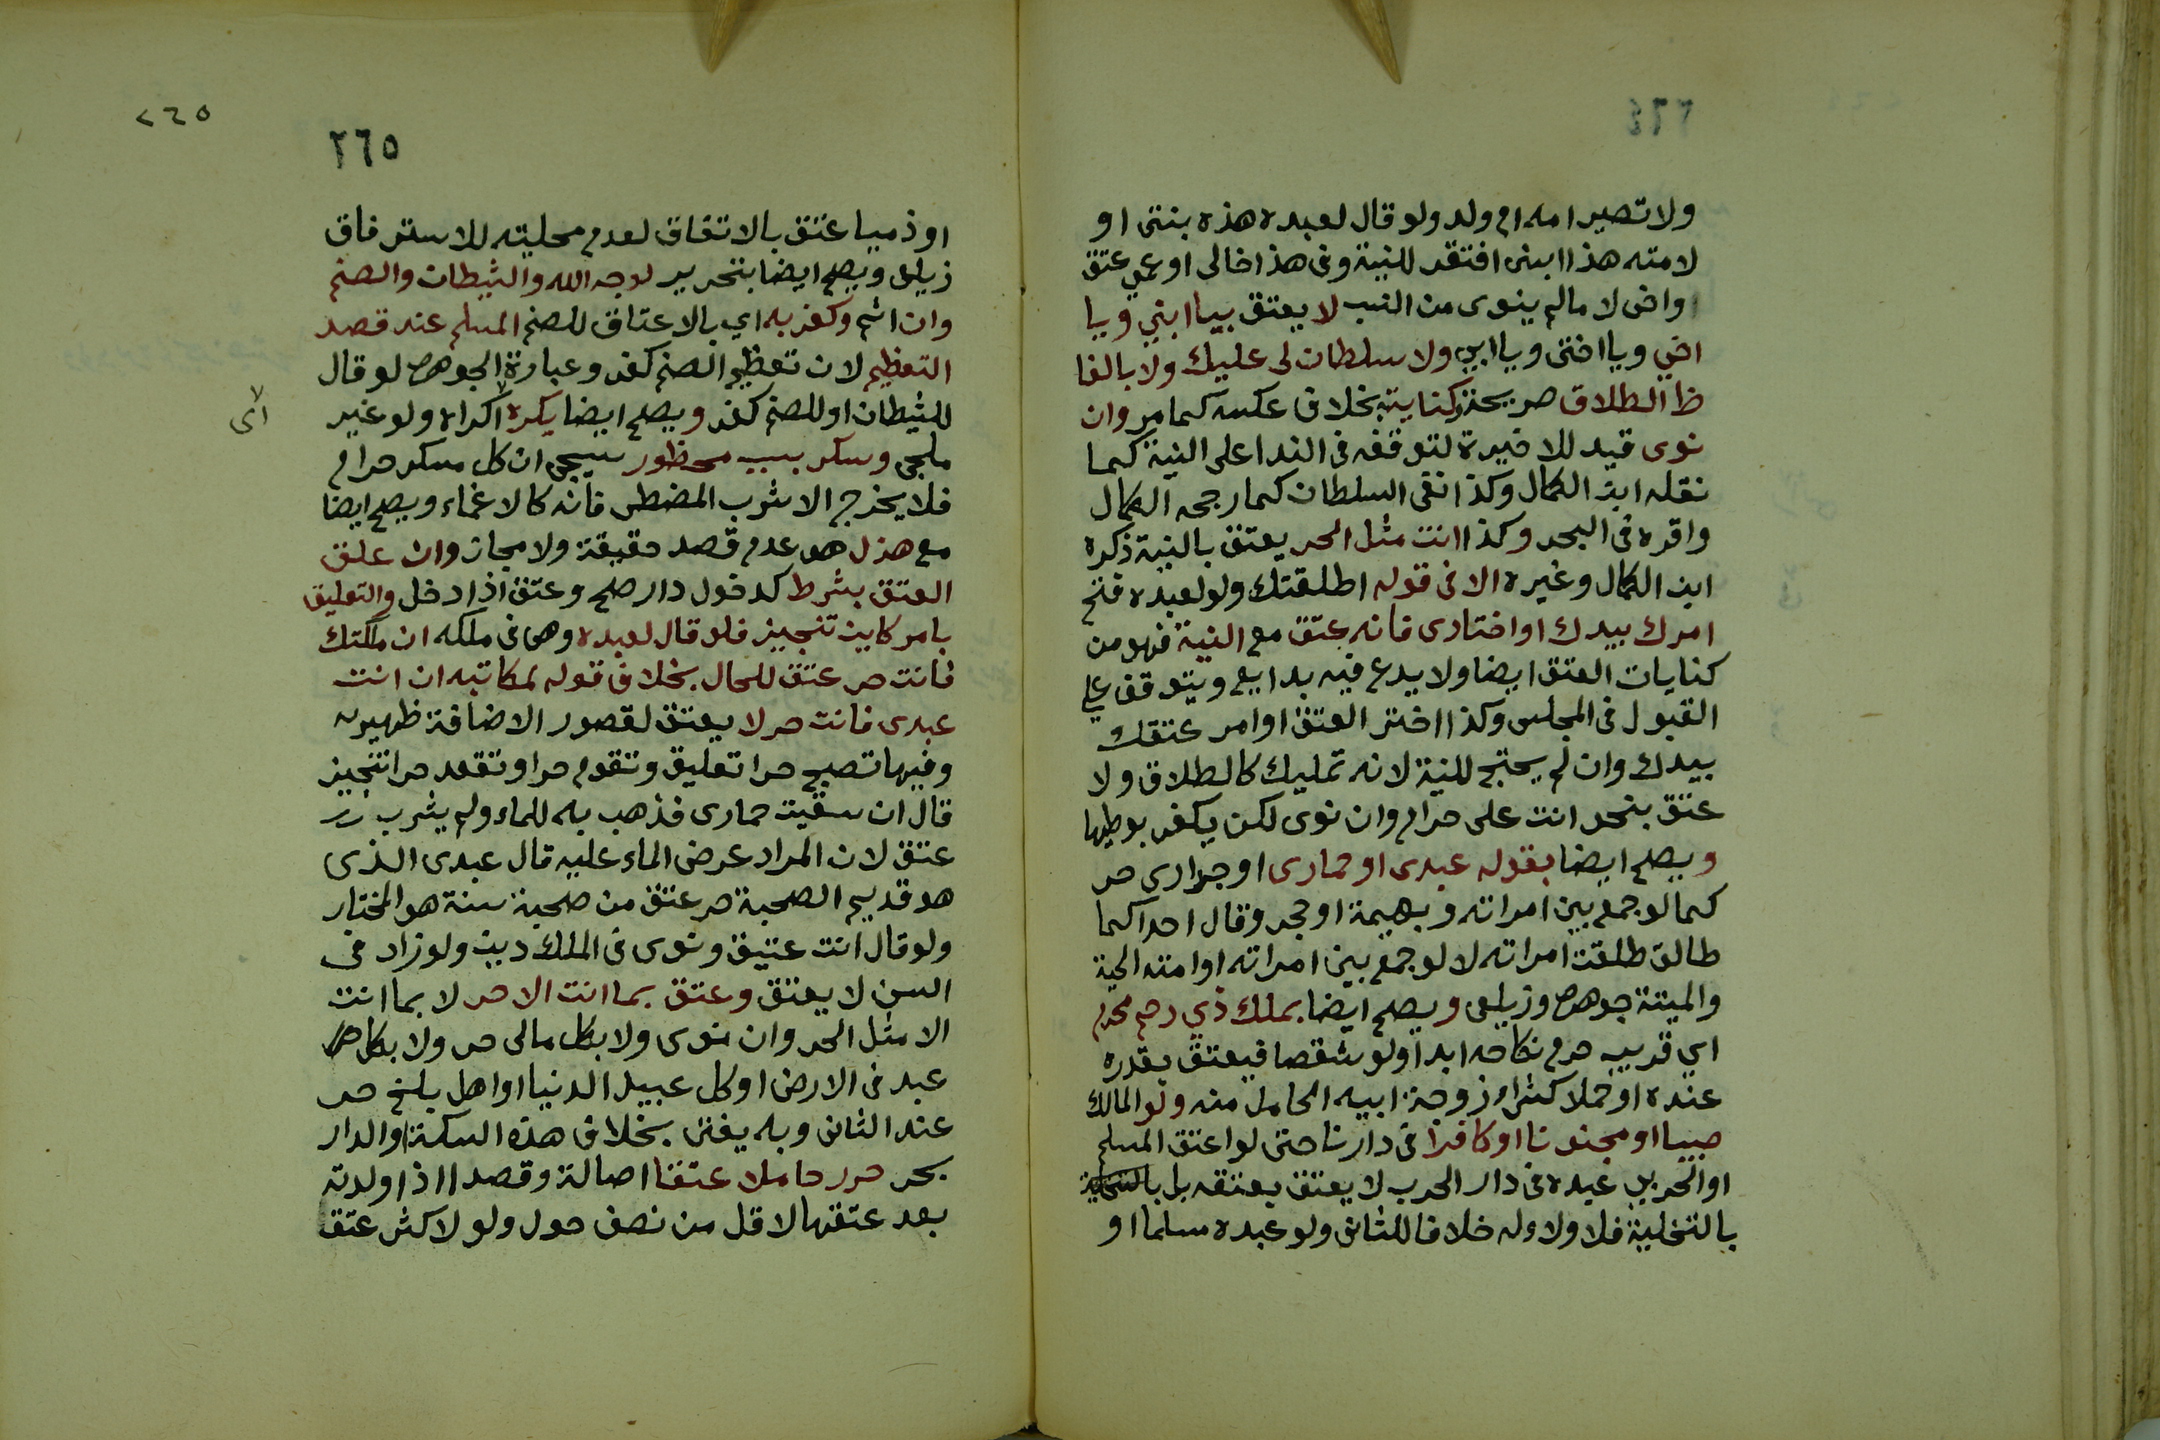 ولا تصير امه ام ولد ولو قال لعبده هذه بنتى او
لامته هذا ابنى افتقر للنية وفى هذا خالى او عمي عتق
او اخى لا مالم ينوى من النسب لا يعتق بيا ابني ويا
اخي ويا اختى ويا ابي ولا سلطان لى عليك ولا بالفا
ظ الطلاق صريحة وكنايته بخلاف عكسه كما مر وان
نوى قيد للاخيرة لتوقفه فى الندا على النية كما
نقله ابن الكمال وكذا نفى السلطان كما رجحه الكمال
واقره فى البحر وكذا انت مثل الحر يعتق بالنية ذكره
ابن الكمال وغيره الا فى قوله اطلقتك ولو لعبده فتح
امرك بيدك او اختارى فانه عتق مع النية فهو من
كنايات العتق ايضا ولا يدع فيه بدايع ويتوقف على
القبول فى المجلس وكذا اختر العتق او امر عتقك
بيدك وان لم يحتج للنية لانه تمليك كالطلاق ولا
عتق بنحو انت على حرام وان نوى لكن يكفر بوطيها
ويصح ايضا بقوله عبدى او حمارى او جدارى حر
كما لو جمع بين امراته وبهيمة او حجر وقال احدا كما
طالق طلقت امراته لا لو جمع بين امراته او امته الحية
والميتة جوهره وزيلعى ويصح ايضا بملك ذي رحم محرم
اي قريب حرم نكاحه ابدا ولو شقصا فيعتق بقدره
عنده او حملا كشراء زوجة ابيه الحامل منه ولو المالك
صبيا او مجنونا او كافرا فى دارنا حتى لو اعتق المسلم
او الحربي عبده فى دار الحرب لا يعتق بعتقه بل بالتخلية
بالتخلية فلا ولاء له خلافا للثانى ولو عبده مسلما او
٢٦٥
٢٦٥
او ذميا عتق بالاتفاق لعدم محليته للاسترقاق
زيلعى ويصح ايضا بتحرير لوجه الله والشيطان والصنم
وان اثم وكفر به اي بالاعتاق للصنم المسلم عند قصد
التعظيم لان تعظيم الصنم كفر وعبارة الجوهره لو قال
للشيطان او للصنم كفر ويصح ايضا يكره اكراه ولو غير
ملجى وسكر بسبب محظور سيجى ان كل مسكر حرام
فلا يخرج الا شرب المضطر فانه كالاغماء ويصح ايضا
مع هزل هو عدم قصد حقيقة ولا مجاز وان علق
العتق بشرط كدخول دار صح وعتق اذا دخل والتعليق
بامر كاين تنجيز فلو قال لعبده وهى فى ملكه ان ملكتك
فانت حر عتق للحال بخلاف قوله لمكاتبه ان انت
عبدى فانت حر لا يعتق لقصور الاضافة ظهيريه
وفيها تصبح حرا تعليق وتقوم حرا وتقعد حرا تنجيز
قال ان سقيت حمارى فذهب به للماء ولم يشرب
عتق لان المراد عرض الماء عليه قال عبدى الذى
هو قديم الصحبة حر عتق من صحبة سنة هو المختار
ولو قال انت عتيق ونوى فى الملك دين ولو زاد فى
السن لا يعتق وعتق بما انت الا حر لا بما انت
الا مثل الحر وان نوى ولا بكل مالى حر ولا بكل
عبد فى الارض او كل عبيد الدنيا او اهل بلخ حر
عند الثانى وبه يفتى بخلاف هذه السكة او الدار
بحر حرر حاملا عتقا اصالة وقصدا اذا ولدته
بعد عتقها لاقل من نصف حول ولو لاكثر عتق